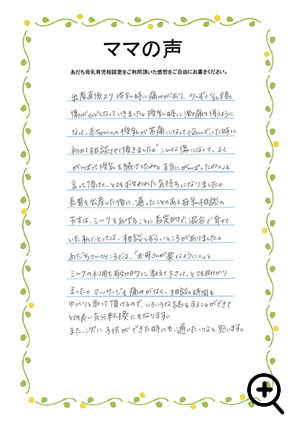 ママの声
あだち母乳育児相談室をご利用頂いた感想をご自由にお書きください。
出産直後より授乳時に痛みがあり、少しずつ乳頭の
傷がひどくなっていきました。授乳時に激痛を伴うように
なって、赤ちゃんへの授乳が苦痛になって悩んでいた時に
初めて相談させて頂きました。「こんなに傷になって、よく
がんばって授乳を続けたね。本当にがんばったね」と
言って頂けて、とても救われた気持ちになりました。
長男を出産した後に通ったことのある母乳相談の
先生は、ミルクをあげることに否定的で、混合で育てて
いた私にとっては、相談しずらいところがありました。
あだちさんのところでは、「お母さんが楽なように」と
ミルクの利用も肯定的に教えて下さって、とても助かり
ました。マッサージも痛みがなく、相談の時間も
ゆっくりと取って頂けるので、いろいろな話をすることができて
とても良い気分転換にもなります。
また、次に子供ができた時にも、通いたいなと思います。